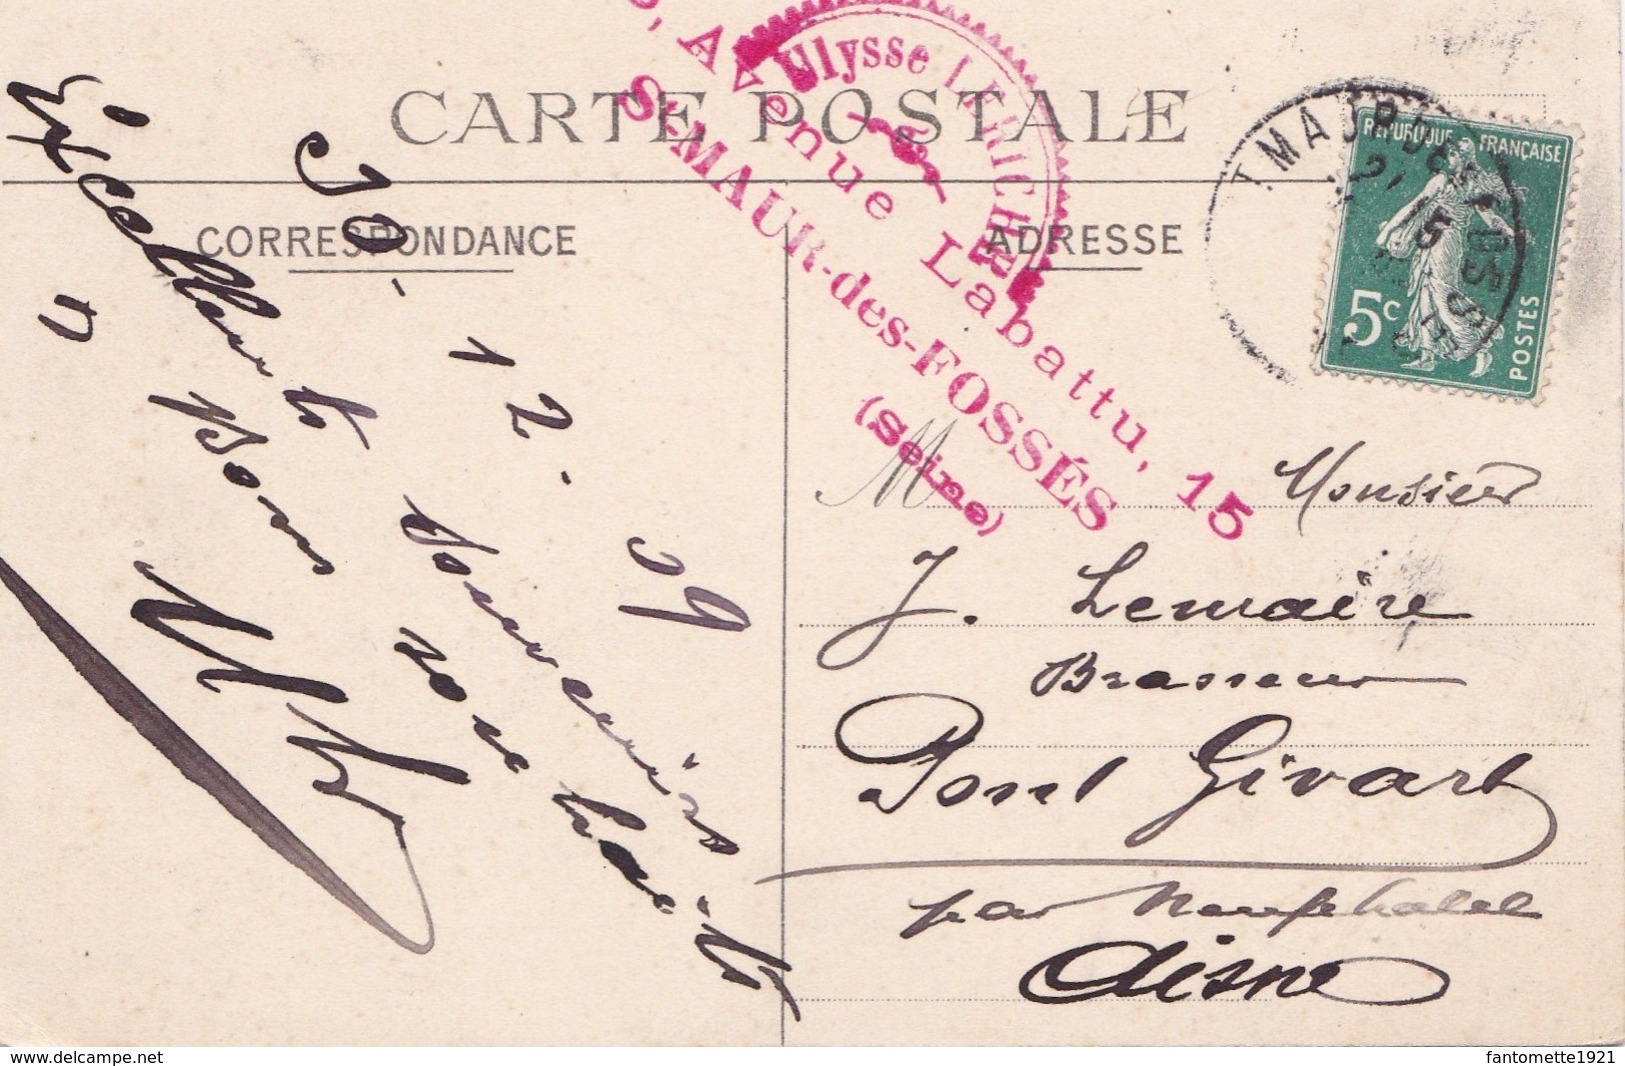 CARTE POSTALE
CORRESPONDANCE
ADRESSE
Ulysse LERICHE
15, Avenue Labattu, 15
St-MAUR-des-FOSSÉS
(Seine)
RÉPUBLIQUE FRANÇAISE
5c
POSTES
30-12-09
Excellents souvenirs
" Bons souhaits
M
Monsieur
J. Lemaire
Brasseur
Pont Givart
par Neufchatel
Aisne
www.delcampe.net
fantomette1921